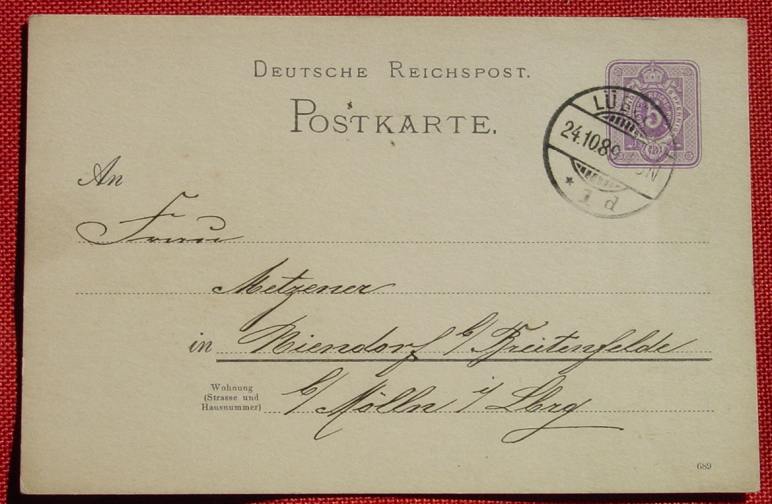 DEUTSCHE REICHSPOST.
POSTKARTE.
LÜB
24.10.89
* 1 d
An
Frau
Metzener
in Niendorf b/ Breitenfelde
Wohnung
(Strasse und
Hausnummer)
b/ Mölln i/ Lbrg
689